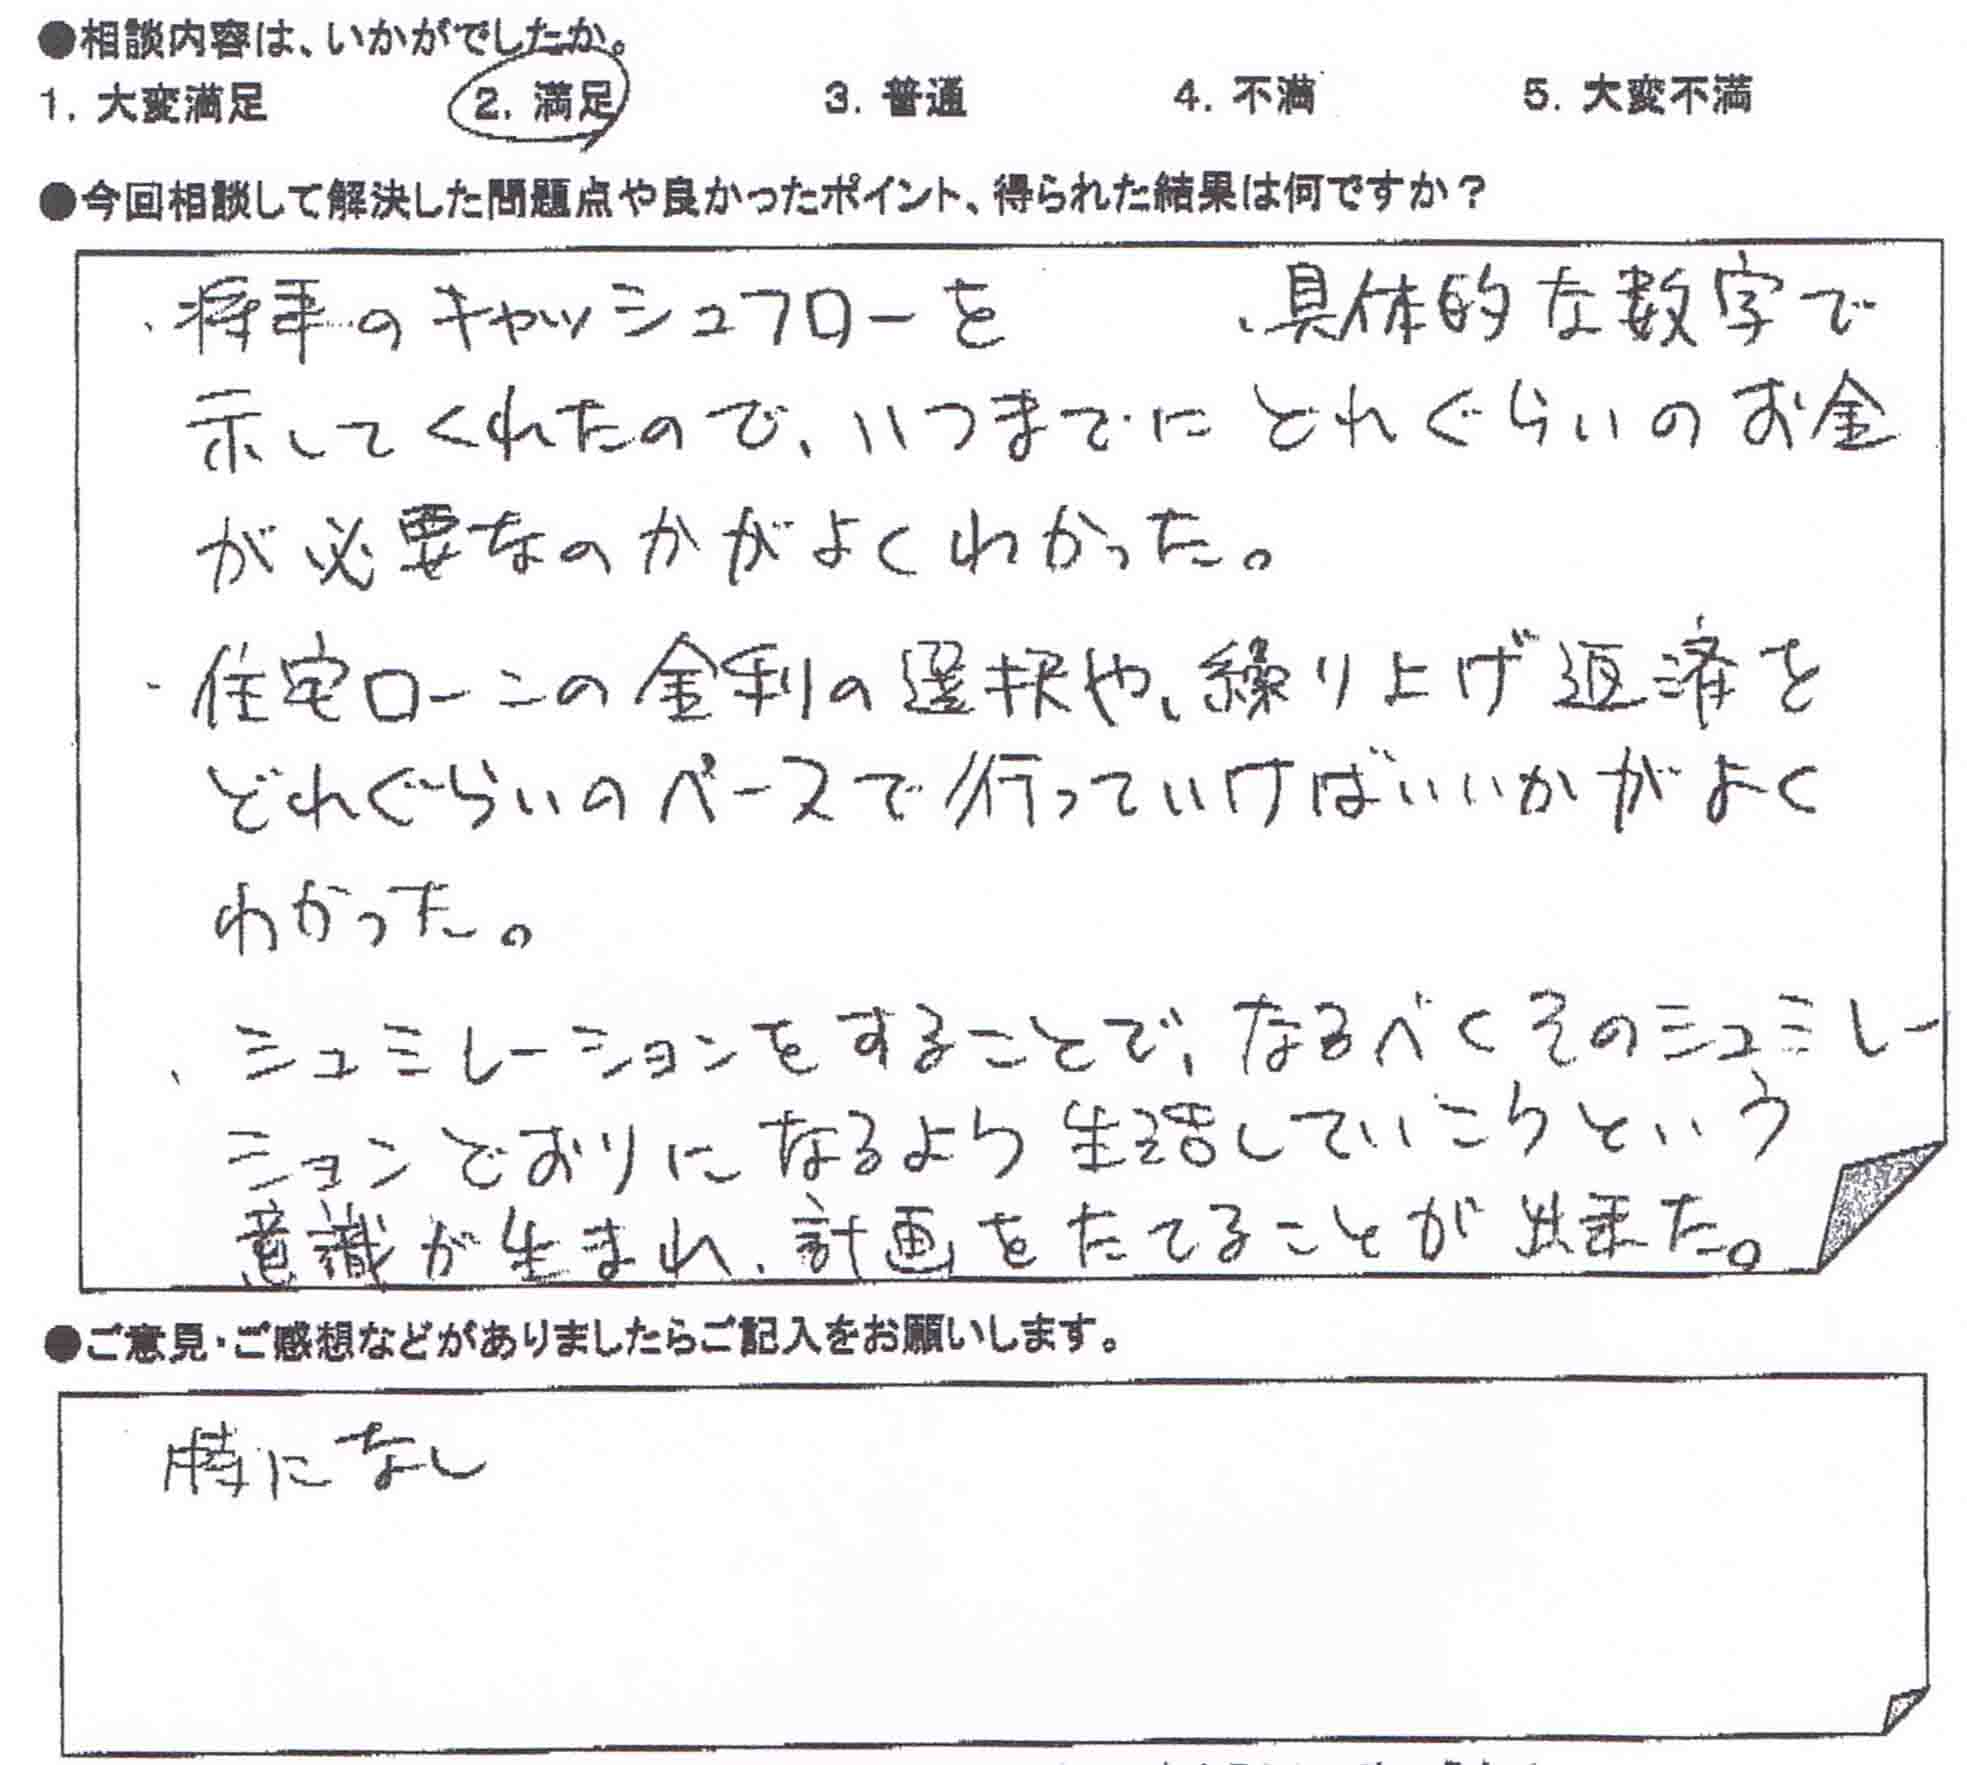 ●相談内容は、いかがでしたか。
1. 大変満足 2. 満足 3. 普通 4. 不満 5. 大変不満
●今回相談して解決した問題点や良かったポイント、得られた結果は何ですか？
・将来のキャッシュフローを 、具体的な数字で
示してくれたので、いつまでにどれぐらいのお金
が必要なのかがよくわかった。
・住宅ローンの金利の選択や、繰り上げ返済を
どれぐらいのペースで行っていけばいいかがよく
わかった。
・シュミレーションをすることで、なるべくそのシュミレー
ションどおりになるよう生活していこうという
意識が生まれ、計画をたてることが出来た。
●ご意見・ご感想などがありましたらご記入をお願いします。
特になし